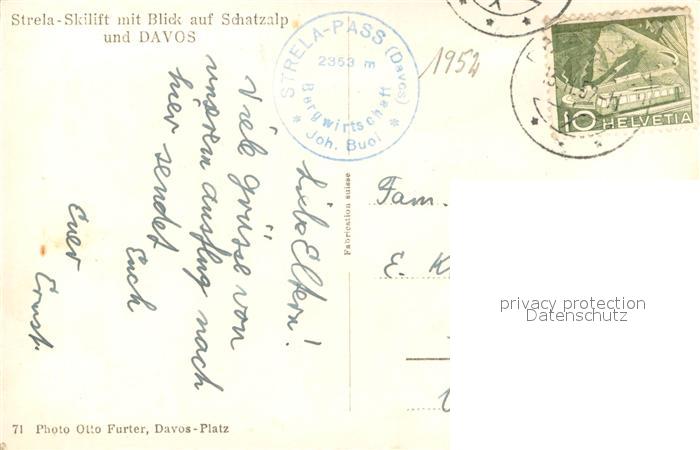 Strela-Skilift mit Blick auf Schatzalp
und DAVOS
STRELA-PASS (Davos)
2353 m
Bergwirtschaft
* Joh. Buol *
1952
HELVETIA
10
Liebe Eltern!
Viele Grüsse von
unserem Ausflug nach
hier sendet
Euch
Euer Ernst.
Fabrication suisse
Fam.
E. K
privacy protection
Datenschutz
71 Photo Otto Furter, Davos-Platz